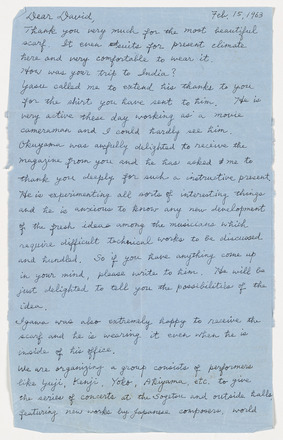 Dear David,
Feb. 15, 1963
Thank you very much for the most beautiful
scarf. It even suits for present climate
here and very comfortable to wear it.
How was your trip to India?
Yasu called me to extend his thanks to you
for the shirt you have sent to him. He is
very active these day working as a movie
cameraman and I could hardly see him.
Okuyama was awfully delighted to receive the
magazine from you and he has asked me to
thank you deeply for such a instructive present.
He is experimenting all sorts of interesting things
and he is anxious to know any new development
of the fresh ideas among the musicians which
require difficult technical works to be discussed
and handled. So if you have anything come up
in your mind, please write to him. He will be
just delighted to tell you the possibilities of the
idea.
was also extremely happy to receive the
scarf and he is wearing it even when he is
inside of his office.
We are organizing a group consists of performers
like Yuji, Kenji, Yoko, Akiyama, etc. to give
the series of concerts at the Sogetsu and outside halls
featuring new works by Japanese composers, world